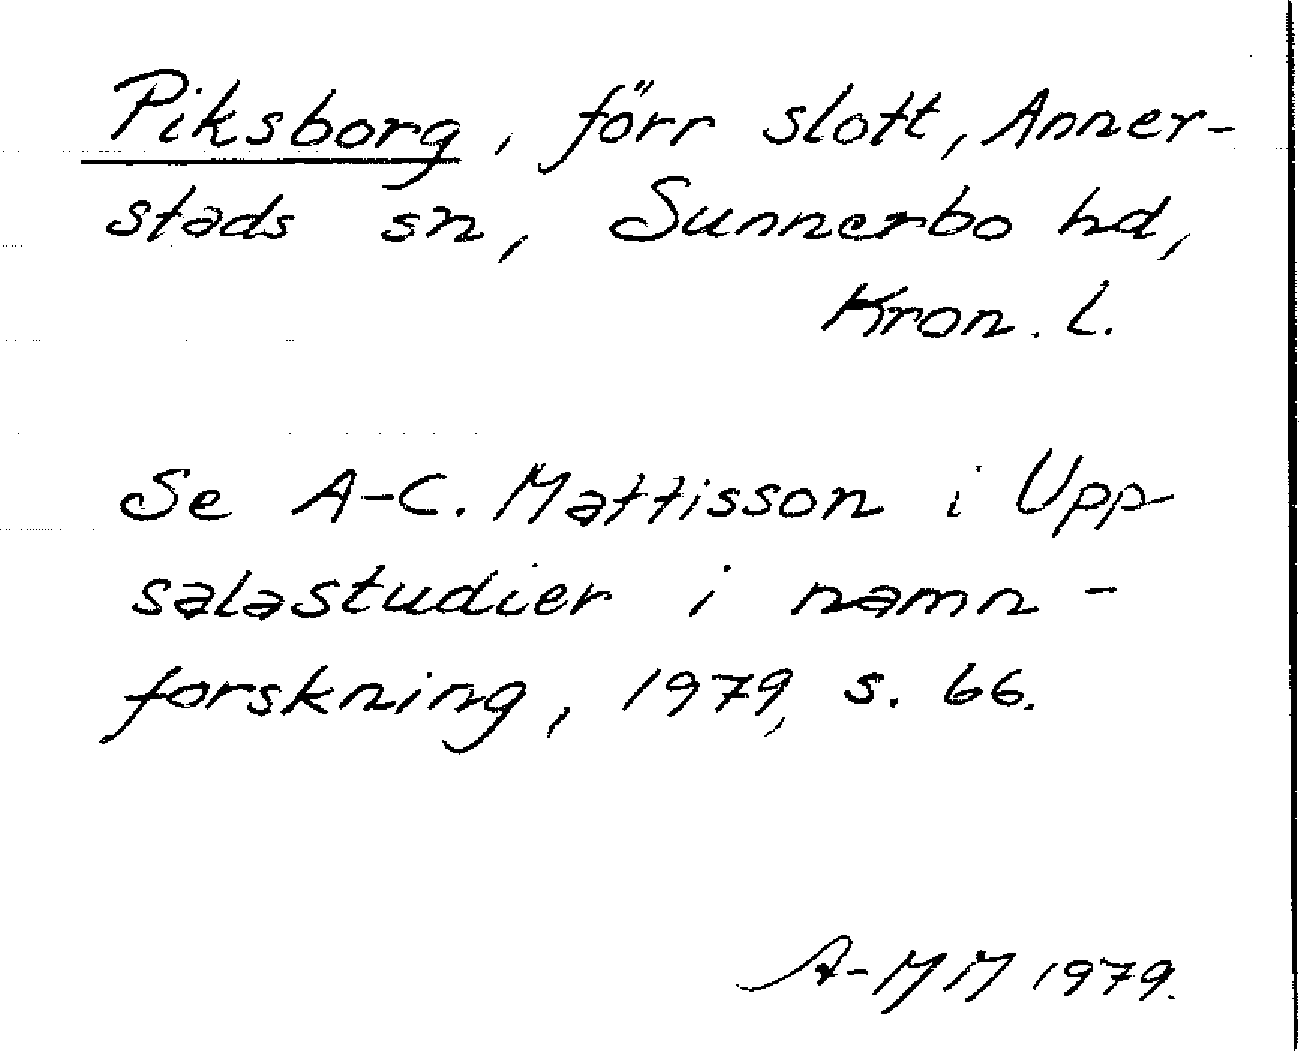 Piksborg, förr slott, Anner-
stads sn, Sunnerbo hd,
Kron. l.
Se A-C. Mattisson i Upp
salastudier i namn-
forskning, 1979, s. 66.
A-MM 1979.